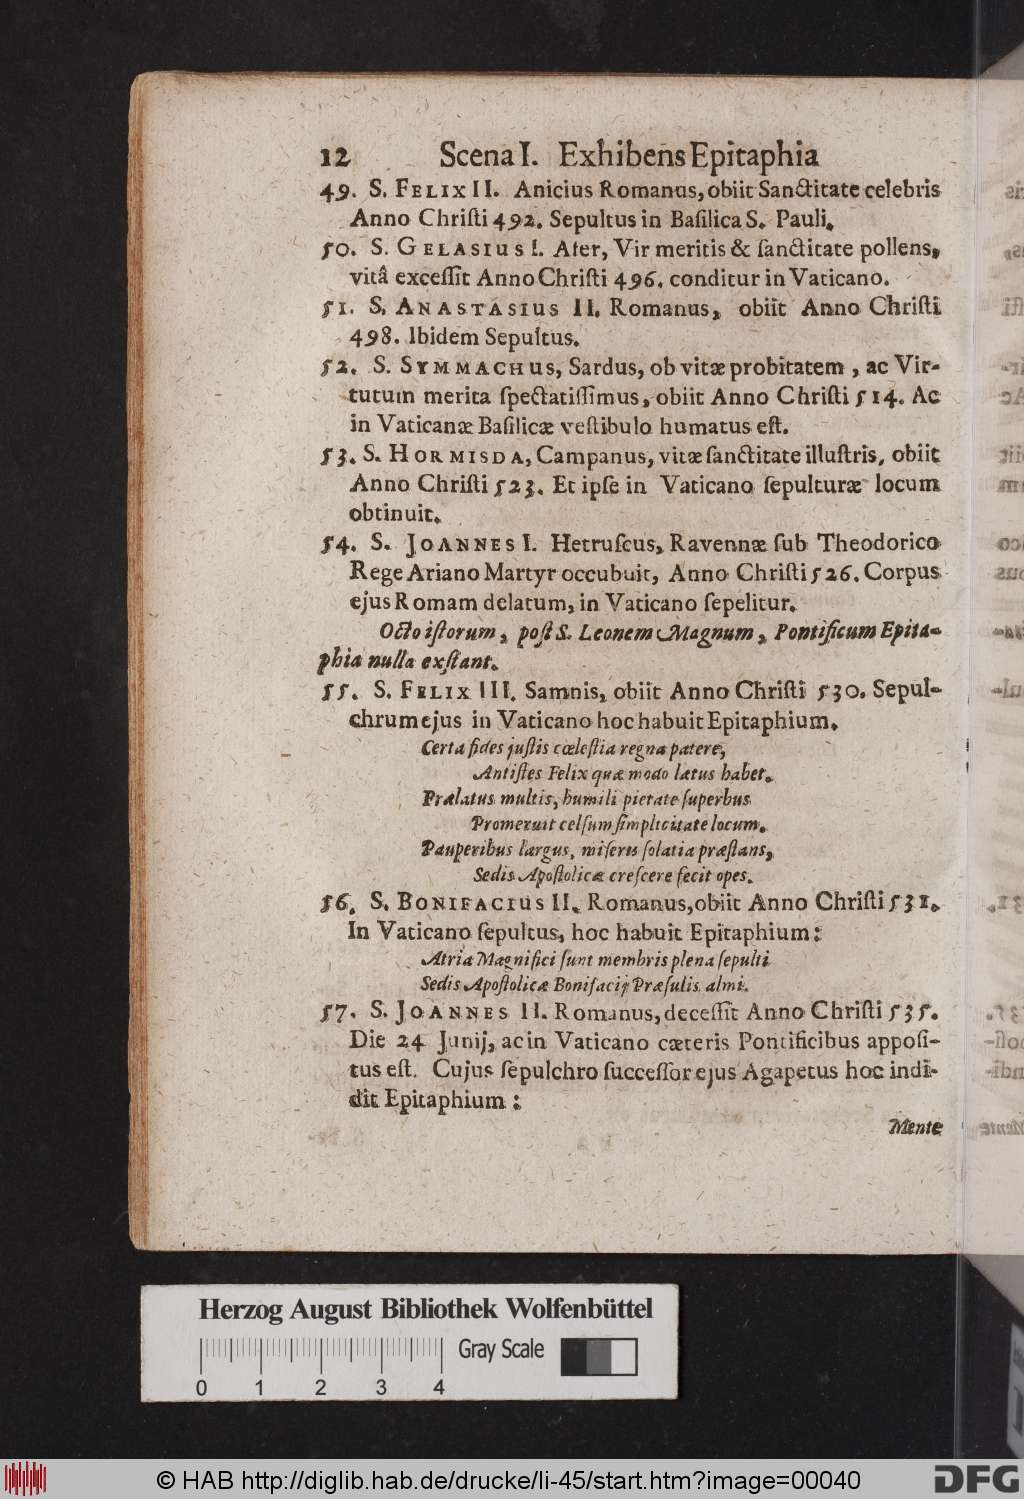 12 Scena I. Exhibens Epitaphia
49. S. FELIX II. Anicius Romanus, obiit Sanctitate celebris
Anno Chriſti 492. Sepultus in Baſilica S. Pauli.
50. S. GELASIUS I. Afer, Vir meritis & ſanctitate pollens,
vitâ exceſſit Anno Chriſti 496. conditur in Vaticano.
51. S. ANASTASIUS II. Romanus, obiit Anno Chriſti
498. Ibidem Sepultus.
52. S. SYMMACHUS, Sardus, ob vitæ probitatem, ac Vir-
tutum merita ſpectatiſſimus, obiit Anno Chriſti 514. Ac
in Vaticanæ Baſilicæ veſtibulo humatus eſt.
53. S. HORMISDA, Campanus, vitæ ſanctitate illuſtris, obiit
Anno Chriſti 523. Et ipſe in Vaticano ſepulturæ locum
obtinuit.
54. S. JOANNES I. Hetruſcus, Ravennæ ſub Theodorico
Rege Ariano Martyr occubuit, Anno Chriſti 526. Corpus
ejus Romam delatum, in Vaticano ſepelitur.
Octo iſtorum, poſt S. Leonem Magnum, Pontificum Epita-
phia nulla exſtant.
55. S. FELIX III. Samnis, obiit Anno Chriſti 530. Sepul-
chrum ejus in Vaticano hoc habuit Epitaphium.
Certa fides juſtis cœleſtia regna patere,
Antiſtes Felix quæ modo lætus habet.
Prælatus multis, humili pietate ſuperbus
Promeruit celſum ſimplicitate locum.
Pauperibus largus, miſeris ſolatia præſtans,
Sedis Apoſtolicæ creſcere fecit opes.
56. S. BONIFACIUS II. Romanus, obiit Anno Chriſti 531.
In Vaticano ſepultus, hoc habuit Epitaphium:
Atria Magnifici ſunt membris plena ſepulti
Sedis Apoſtolicæ Bonifacij Præſulis almi.
57. S. JOANNES II. Romanus, deceſſit Anno Chriſti 535.
Die 24 Junij, ac in Vaticano cæteris Pontificibus appoſi-
tus eſt. Cujus ſepulchro ſucceſſor ejus Agapetus hoc indi-
dit Epitaphium:
Mente
Herzog August Bibliothek Wolfenbüttel
Gray Scale
0 1 2 3 4
© HAB http://diglib.hab.de/drucke/li-45/start.htm?image=00040
DFG